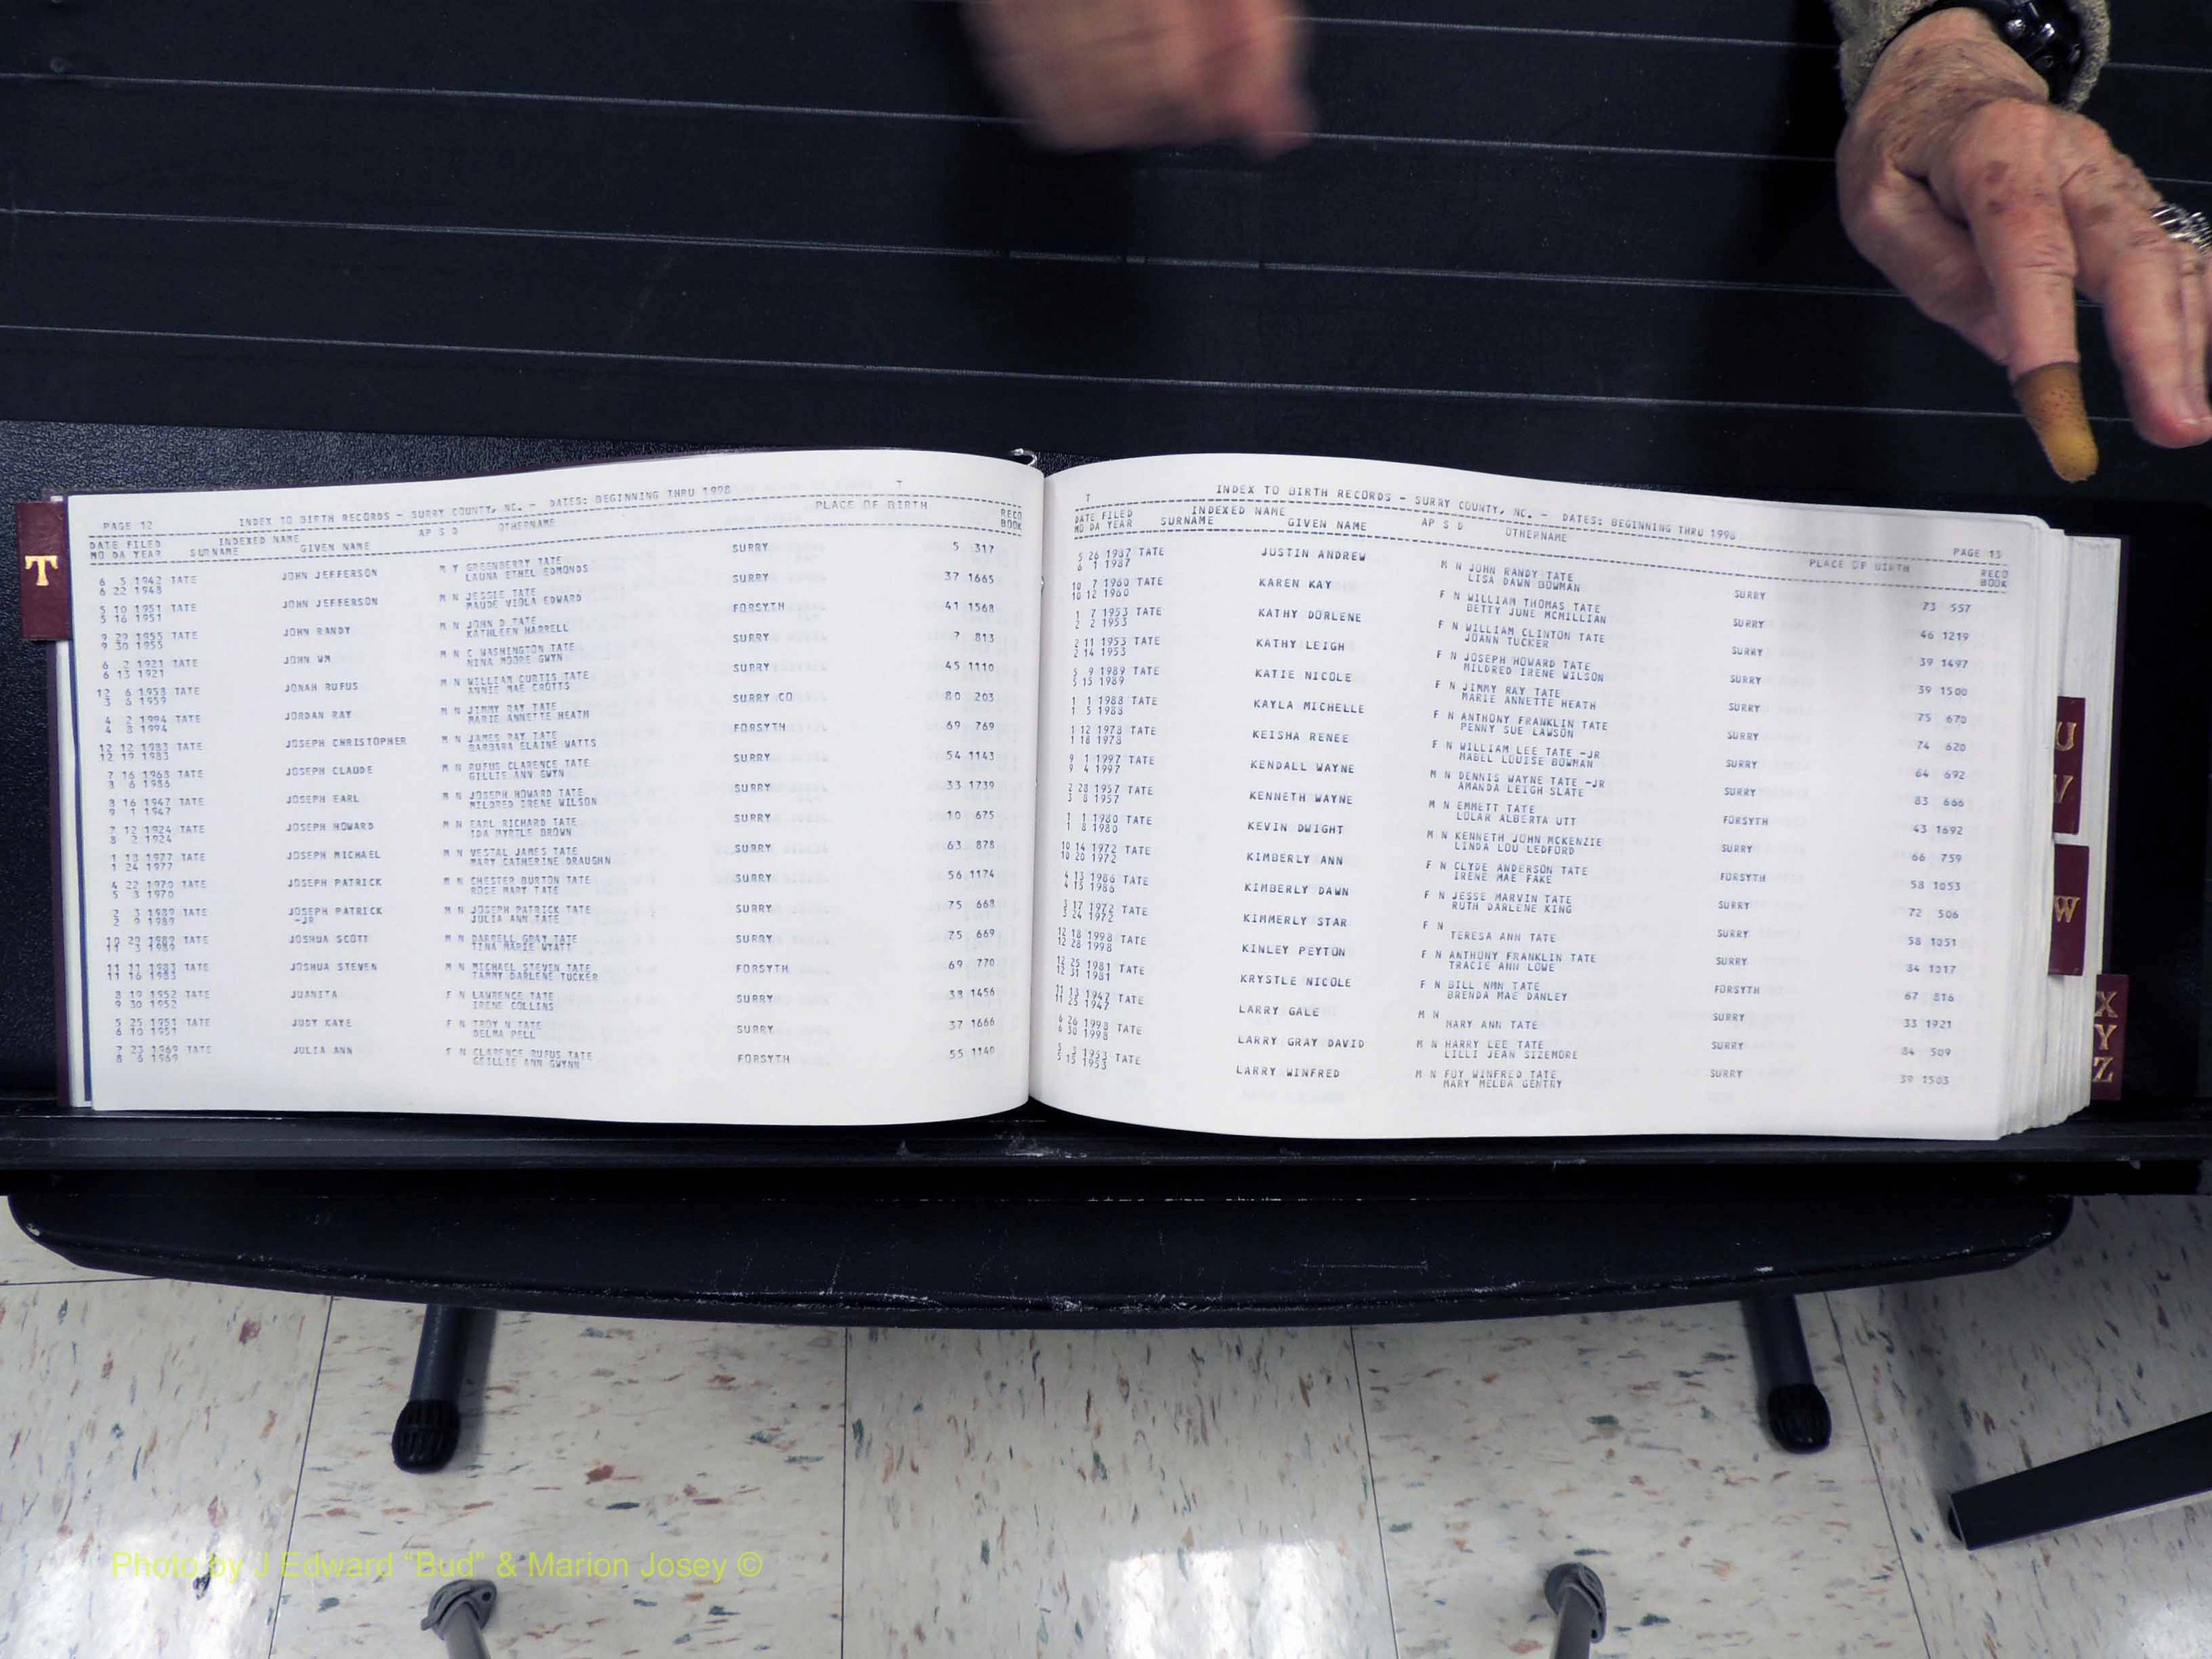 T
PAGE 12 INDEX TO BIRTH RECORDS - SURRY COUNTY, NC. - DATES: BEGINNING THRU 1998 T
DATE FILED INDEXED NAME AP S D OTHERNAME PLACE OF BIRTH RECO
MO DA YEAR SURNAME GIVEN NAME BOOK
6 5 1942 TATE JOHN JEFFERSON M Y GREENBERRY TATE SURRY 5 317
6 22 1948 LAUNA ETHEL EDMONDS
5 10 1951 TATE JOHN JEFFERSON M N JESSIE TATE SURRY 37 1665
5 16 1951 MAUDE VIOLA EDWARD
9 29 1955 TATE JOHN RANDY M N JOHN D TATE FORSYTH 41 1568
9 30 1955 KATHLEEN HARRELL
6 2 1921 TATE JOHN WM M N C WASHINGTON TATE SURRY 7 813
6 13 1921 NINA MOORE GWYN
12 6 1958 TATE JONAH RUFUS M N WILLIAM CURTIS TATE SURRY 45 1110
3 6 1959 ANNIE MAE CROTTS
4 2 1994 TATE JORDAN RAY M N JIMMY RAY TATE SURRY CO 80 203
4 8 1994 MARIE ANNETTE HEATH
12 12 1983 TATE JOSEPH CHRISTOPHER M N JAMES RAY TATE FORSYTH 69 769
12 19 1983 BARBARA ELAINE WATTS
7 16 1968 TATE JOSEPH CLAUDE M N RUFUS CLARENCE TATE SURRY 54 1143
3 6 1986 GILLIE ANN GWYN
8 16 1947 TATE JOSEPH EARL M N JOSEPH HOWARD TATE SURRY 33 1739
9 1 1947 MILDRED IRENE WILSON
7 12 1924 TATE JOSEPH HOWARD M N EARL RICHARD TATE SURRY 10 675
8 2 1924 IDA MYRTLE BROWN
1 18 1977 TATE JOSEPH MICHAEL M N VESTAL JAMES TATE SURRY 63 878
1 24 1977 MARY CATHERINE DRAUGHN
4 22 1970 TATE JOSEPH PATRICK M N CHESTER BURTON TATE SURRY 56 1174
5 3 1970 ROSE MARY TATE
2 3 1989 TATE JOSEPH PATRICK M N JOSEPH PATRICK TATE SURRY 75 668
2 9 1989 -JR JULIA ANN TATE
10 29 1989 TATE JOSHUA SCOTT M N DARRELL GRAY TATE SURRY 75 669
11 3 1989 TINA MARIE WYATT
11 11 1983 TATE JOSHUA STEVEN M N MICHAEL STEVEN TATE FORSYTH 69 770
11 16 1983 TAMMY DARLENE TUCKER
8 19 1952 TATE JUANITA F N LAWRENCE TATE SURRY 38 1456
9 30 1952 IRENE COLLINS
5 25 1951 TATE JUDY KAYE F N TROY N TATE SURRY 37 1666
6 10 1951 DELMA PELL
7 23 1969 TATE JULIA ANN F N CLARENCE RUFUS TATE FORSYTH 55 1140
8 6 1969 GEILLIE ANN GWYNN
T INDEX TO BIRTH RECORDS - SURRY COUNTY, NC. - DATES: BEGINNING THRU 1998 PAGE 13
DATE FILED INDEXED NAME AP S D OTHERNAME PLACE OF BIRTH RECO
MO DA YEAR SURNAME GIVEN NAME BOOK
5 26 1987 TATE JUSTIN ANDREW M N JOHN RANDY TATE SURRY 73 557
6 1 1987 LISA DAWN BOWMAN
10 7 1960 TATE KAREN KAY F N WILLIAM THOMAS TATE SURRY 46 1219
10 12 1960 BETTY JUNE MCMILLIAN
1 7 1953 TATE KATHY DORLENE F N WILLIAM CLINTON TATE SURRY 39 1497
2 2 1953 JOANN TUCKER
2 11 1953 TATE KATHY LEIGH F N JOSEPH HOWARD TATE SURRY 39 1500
2 14 1953 MILDRED IRENE WILSON
5 9 1989 TATE KATIE NICOLE F N JIMMY RAY TATE SURRY 75 670
5 15 1989 MARIE ANNETTE HEATH
1 1 1988 TATE KAYLA MICHELLE F N ANTHONY FRANKLIN TATE SURRY 74 620
1 5 1988 PENNY SUE LAWSON
1 12 1978 TATE KEISHA RENEE F N WILLIAM LEE TATE -JR SURRY 64 692
1 18 1978 MABEL LOUISE BOWMAN
9 1 1997 TATE KENDALL WAYNE M N DENNIS WAYNE TATE -JR SURRY 83 666
9 4 1997 AMANDA LEIGH SLATE
2 28 1957 TATE KENNETH WAYNE M N EMMETT TATE FORSYTH 43 1692
3 8 1957 LOLAR ALBERTA UTT
1 1 1980 TATE KEVIN DWIGHT M N KENNETH JOHN MCKENZIE SURRY 66 759
1 8 1980 LINDA LOU LEDFORD
10 14 1972 TATE KIMBERLY ANN F N CLYDE ANDERSON TATE FORSYTH 58 1053
10 20 1972 IRENE MAE FAKE
4 13 1986 TATE KIMBERLY DAWN F N JESSE MARVIN TATE SURRY 72 506
4 15 1986 RUTH DARLENE KING
3 17 1972 TATE KIMMERLY STAR F N SURRY 58 1051
3 24 1972 TERESA ANN TATE
12 18 1998 TATE KINLEY PEYTON F N ANTHONY FRANKLIN TATE SURRY 84 1017
12 28 1998 TRACIE ANN LOWE
12 25 1981 TATE KRYSTLE NICOLE F N BILL NMN TATE FORSYTH 67 816
12 31 1981 BRENDA MAE DANLEY
11 13 1947 TATE LARRY GALE M N SURRY 33 1921
11 25 1947 MARY ANN TATE
6 26 1998 TATE LARRY GRAY DAVID M N HARRY LEE TATE SURRY 84 509
6 30 1998 LILLI JEAN SIZEMORE
5 3 1953 TATE LARRY WINFRED M N FOY WINFRED TATE SURRY 39 1503
5 15 1953 MARY MELBA GENTRY
U
V
W
X
Y
Z
Photo by J Edward "Bud" & Marion Josey ©